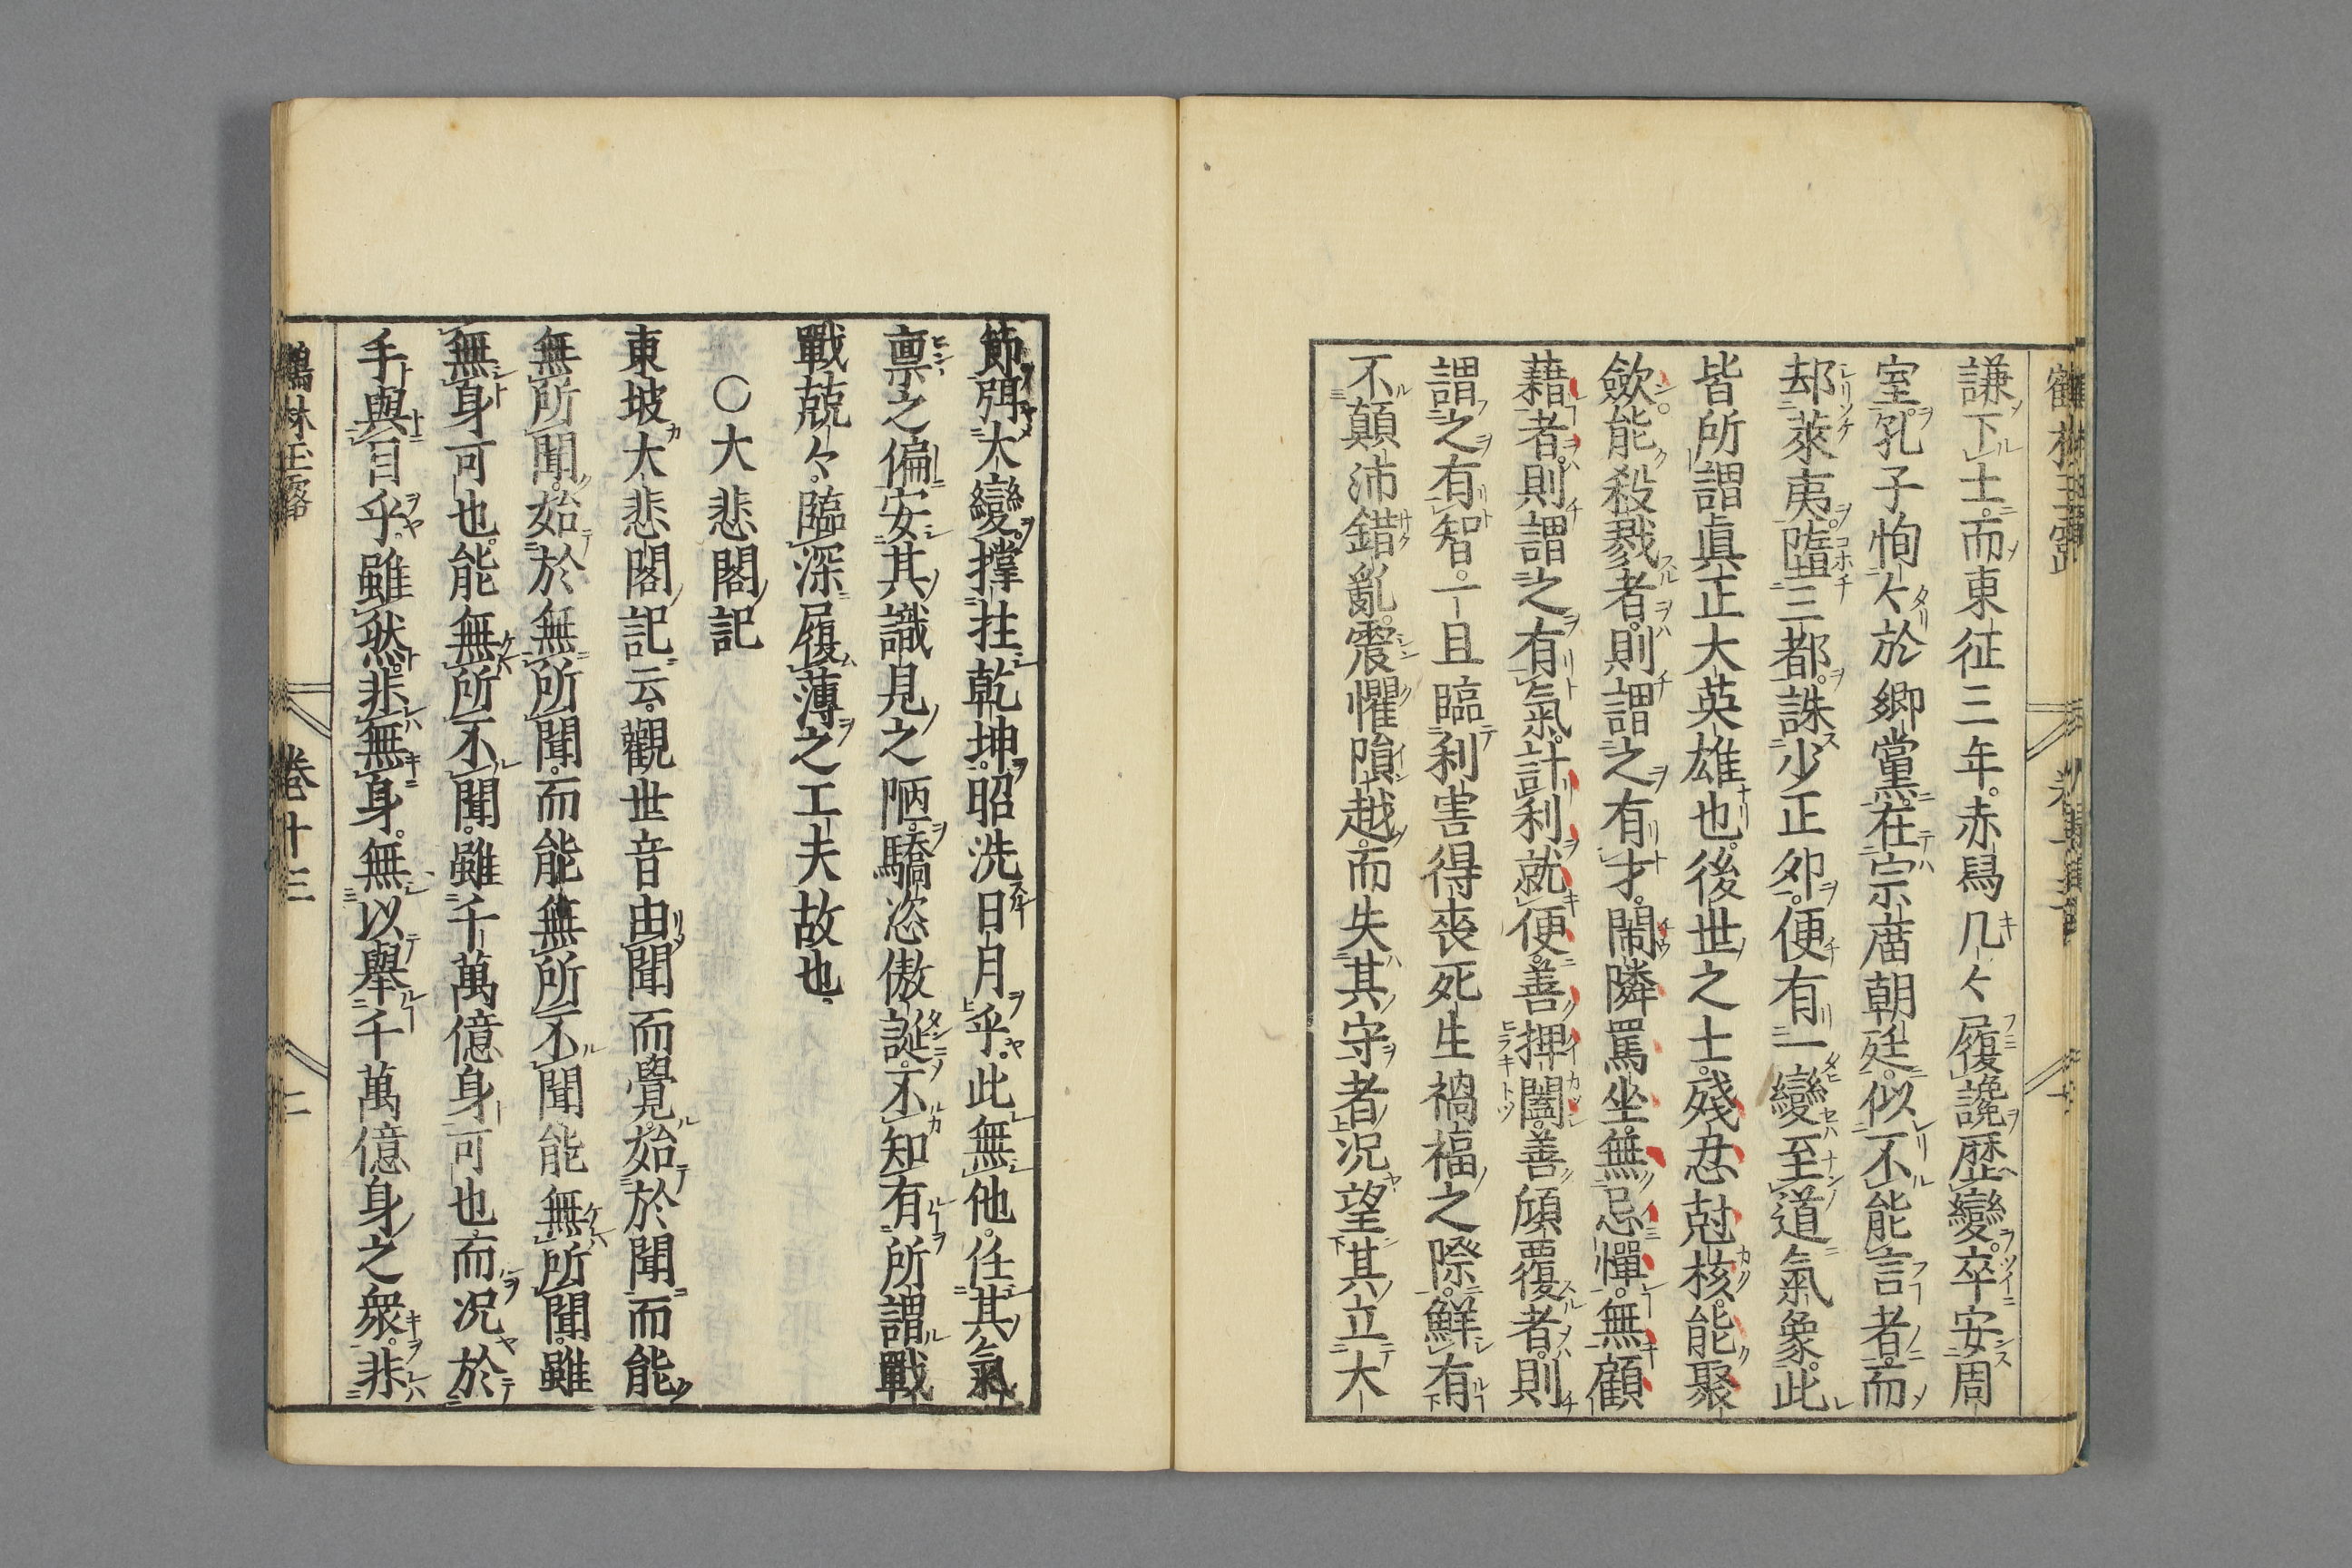 謙下士而東征三年赤舄几々履讒歴變卒安周
室孔子恂々於鄉黨在宗庿朝廷似不能言者而
却萊夷墮三都誅少正夘便有一變至道氣象此
皆所謂眞正大英雄也後世之士殘忍尅核能聚
歛能殺戮者則謂之有才閙隣罵坐無忌憚無顧
藉者則謂之有氣計利就便善捭闔善傾覆者則
謂之有智一旦臨利害得丧死生禍福之際鮮有
不顛沛錯亂震懼隕越而失其守者况望其立大
節弭大變撑拄乾坤昭洗日月乎此無他任其氣
禀之偏安其識見之陋驕恣傲誕不知有所謂戰
戰兢々臨深履薄之工夫故也
○大悲閣記
東坡大悲閣記云觀世音由聞而覺始於聞而能
無所聞始於無所聞而能無所不聞能無所聞雖
無身可也能無所不聞雖千萬億身可也而况於
手與目乎雖然非無身無以舉千萬億身之衆非
鶴林玉露 卷十三 二